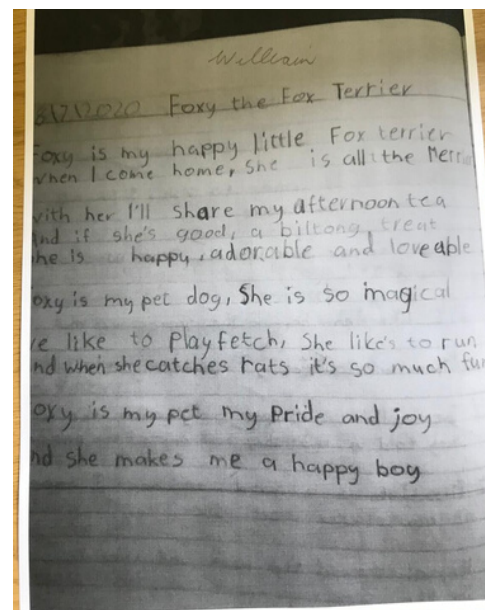 William
8/7/2020 Foxy the Fox Terrier
oxy is my happy little Fox terrier
when I come home, She is all the Merri
with her I'll share my afternoon tea
nd if she's good, a biltong treat
he is a happy, adorable and loveable
oxy is my pet dog, She is so magical
e like to Play fetch, She like's to run
nd when she catches rats it's so much fun
oxy is my pet my Pride and joy
nd she makes me a happy boy